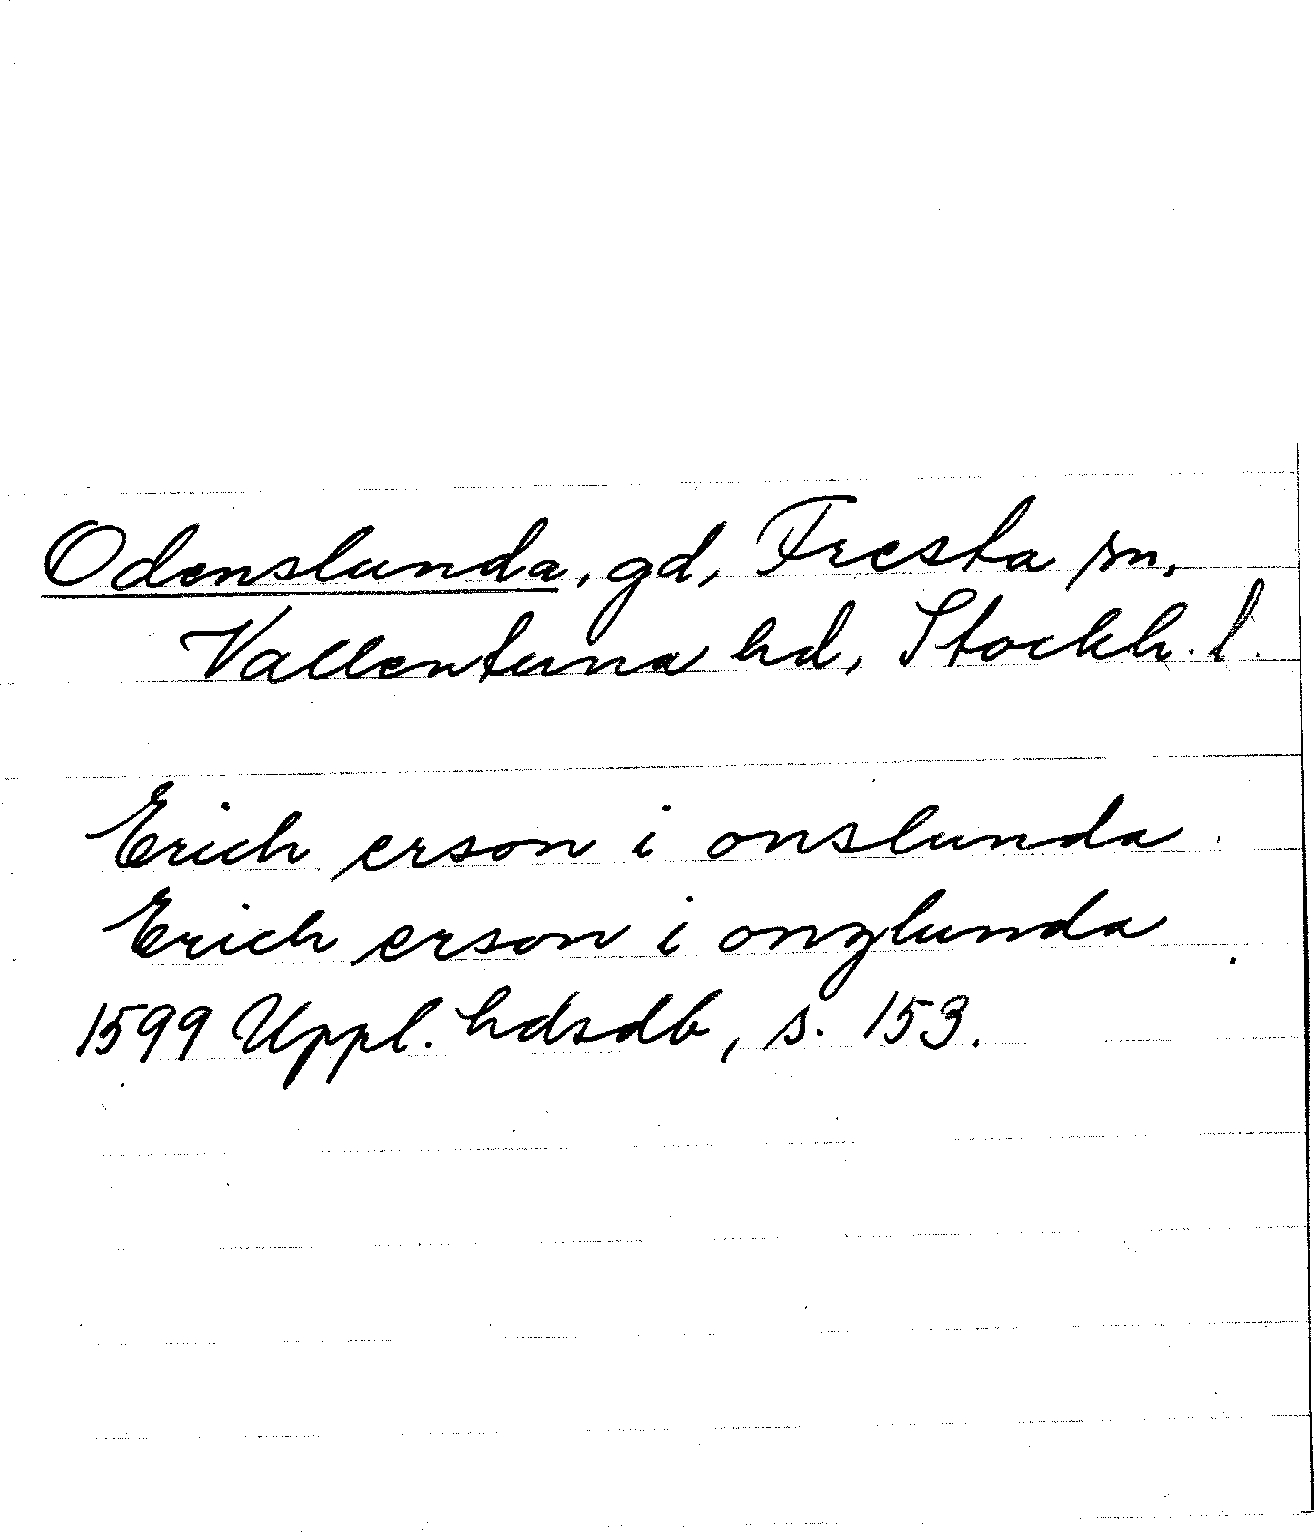 Odenslunda, gd, Fresta sn,
Vallentuna hd, Stockh. l.
Erich erson i onslunda
Erich erson i onzlunda
1599 Uppl. hdsdb, s. 153.